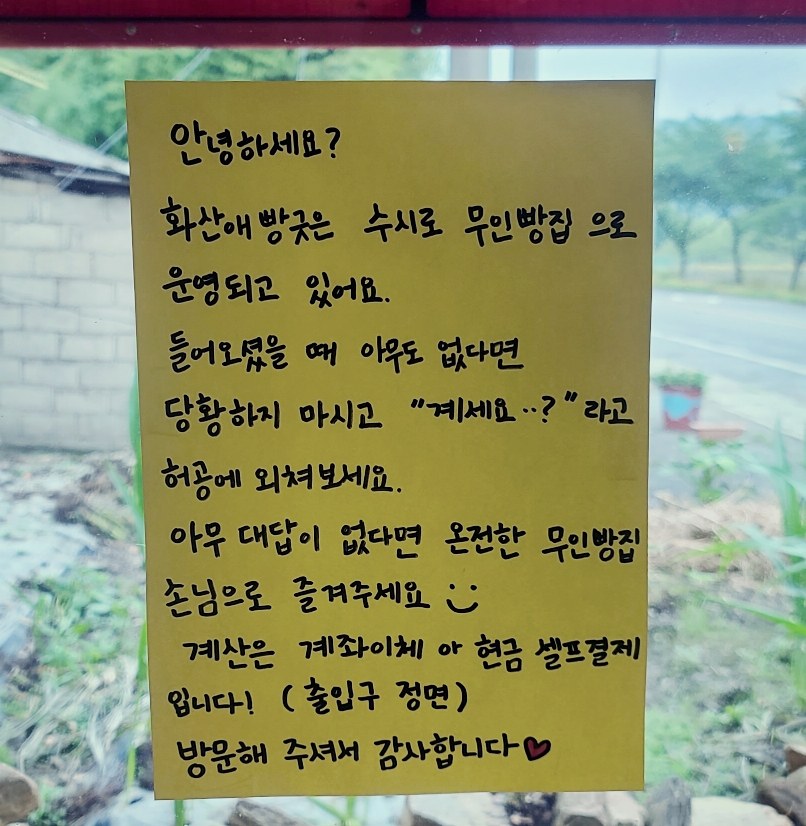 안녕하세요?
화산애빵긋은 수시로 무인빵집 으로
운영되고 있어요.
들어오셨을 때 아무도 없다면
당황하지 마시고 "계세요..?"라고
허공에 외쳐보세요.
아무 대답이 없다면 온전한 무인빵집
손님으로 즐겨주세요 :)
계산은 계좌이체 아 현금 셀프결제
입니다! (출입구 정면)
방문해 주셔서 감사합니다♥